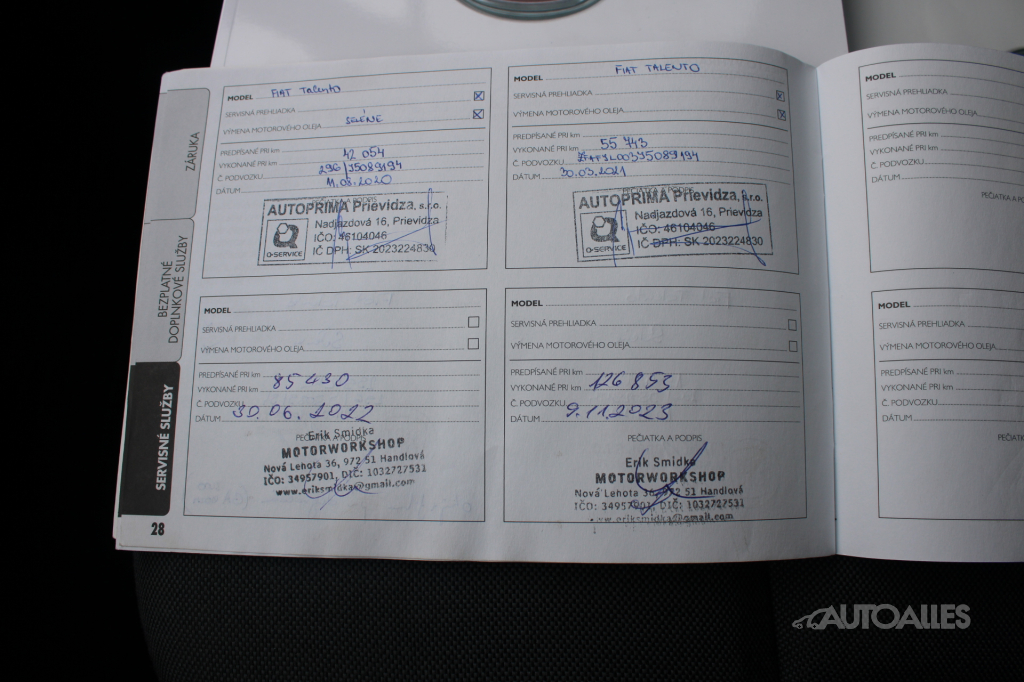 ZÁRUKA
BEZPLATNÉ
DOPLNKOVÉ SLUŽBY
SERVISNÉ SLUŽBY
28
MODEL FIAT Talento
SERVISNÁ PREHLIADKA
VÝMENA MOTOROVÉHO OLEJA SELÉNE
PREDPÍSANÉ PRI km
VYKONANÉ PRI km 42 054
Č. PODVOZKU 296/J5089194
DÁTUM 11.08.2020
PEČIATKA A PODPIS
AUTOPRIMA Prievidza, s.r.o.
Nadjazdová 16, Prievidza
IČO: 46104046
IČ DPH: SK 2023224830
Q-SERVICE
MODEL FIAT TALENTO
SERVISNÁ PREHLIADKA
VÝMENA MOTOROVÉHO OLEJA
PREDPÍSANÉ PRI km
VYKONANÉ PRI km 55 743
Č. PODVOZKU
DÁTUM 30.03.2021
PEČIATKA A PODPIS
AUTOPRIMA Prievidza, s.r.o.
Nadjazdová 16, Prievidza
IČO: 46104046
IČ DPH: SK 2023224830
Q-SERVICE
MODEL
SERVISNÁ PREHLIADKA
VÝMENA MOTOROVÉHO OLEJA
PREDPÍSANÉ PRI km
VYKONANÉ PRI km
Č. PODVOZKU
DÁTUM
PEČIATKA A PO
MODEL
SERVISNÁ PREHLIADKA
VÝMENA MOTOROVÉHO OLEJA
PREDPÍSANÉ PRI km
VYKONANÉ PRI km 85 430
Č. PODVOZKU
DÁTUM 30.06.2022
PEČIATKA A PODPIS
Erik Smidka
MOTORWORKSHOP
Nová Lehota 36, 972 51 Handlová
IČO: 34957901, DIČ: 1032727531
www.eriksmidka@gmail.com
MODEL
SERVISNÁ PREHLIADKA
VÝMENA MOTOROVÉHO OLEJA
PREDPÍSANÉ PRI km
VYKONANÉ PRI km 126 853
Č. PODVOZKU
DÁTUM 9.11.2023
PEČIATKA A PODPIS
Erik Smidka
MOTORWORKSHOP
Nová Lehota 36, 972 51 Handlová
IČO: 34957901, DIČ: 1032727531
www.eriksmidka@gmail.com
MODEL
SERVISNÁ PREHLIADKA
VÝMENA MOTOROVÉHO OLEJA
PREDPÍSANÉ PRI km
VYKONANÉ PRI km
Č. PODVOZKU
DÁTUM
PEČIATK
AUTOALLES